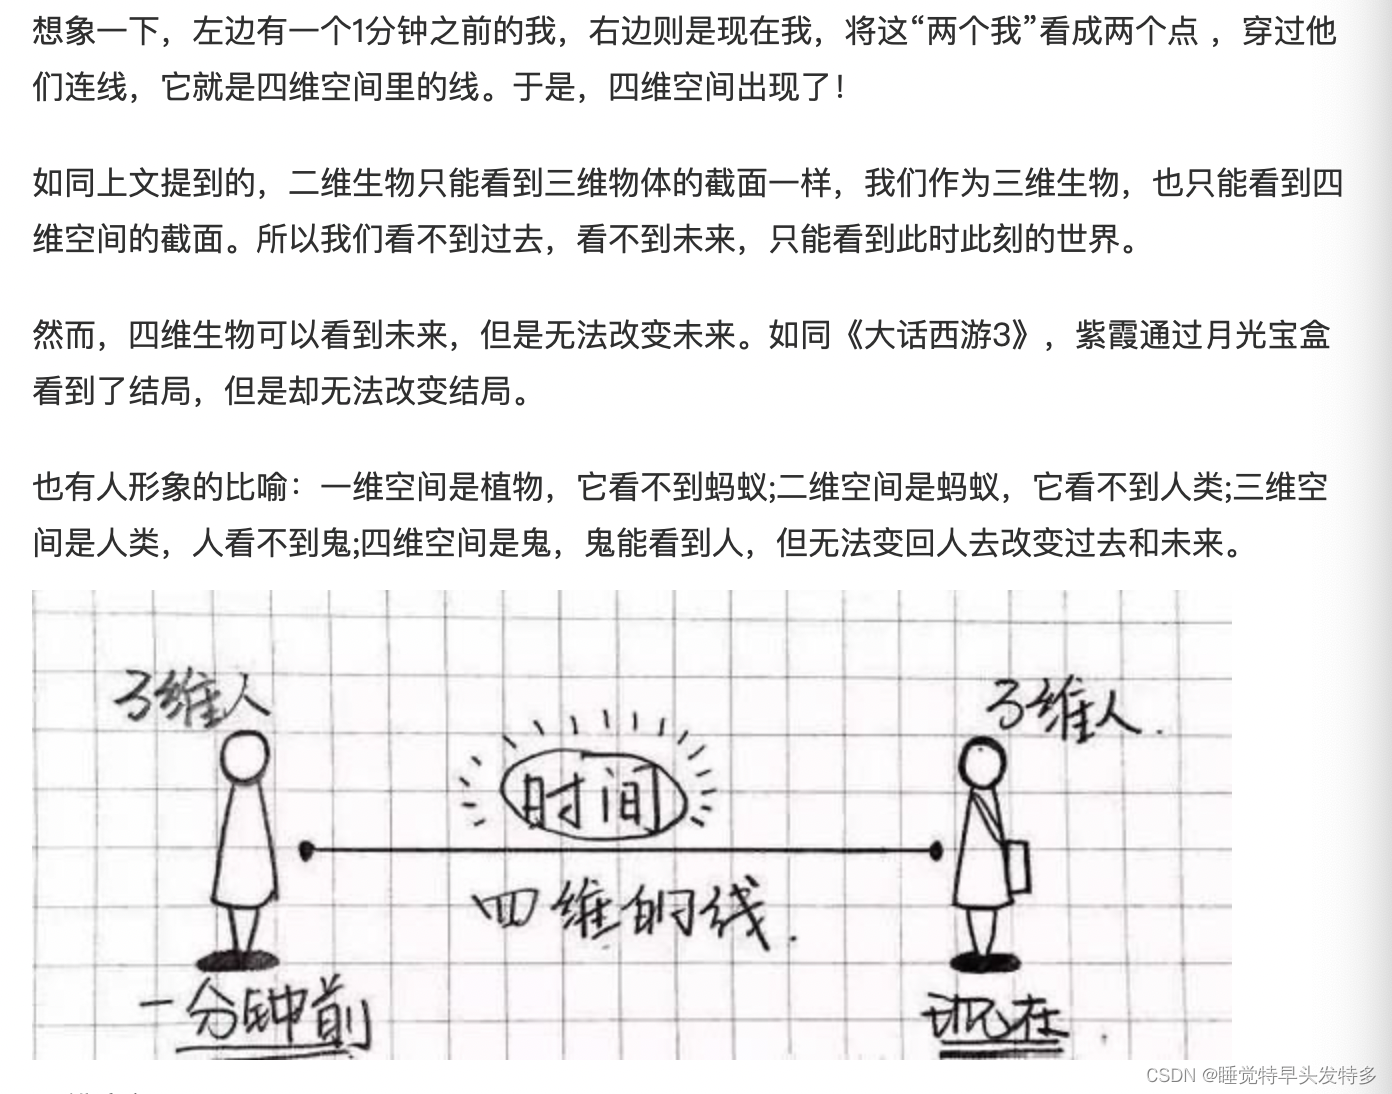 想象一下，左边有一个1分钟之前的我，右边则是现在我，将这“两个我”看成两个点 ，穿过他
们连线，它就是四维空间里的线。于是，四维空间出现了！
如同上文提到的，二维生物只能看到三维物体的截面一样，我们作为三维生物，也只能看到四
维空间的截面。所以我们看不到过去，看不到未来，只能看到此时此刻的世界。
然而，四维生物可以看到未来，但是无法改变未来。如同《大话西游3》，紫霞通过月光宝盒
看到了结局，但是却无法改变结局。
也有人形象的比喻：一维空间是植物，它看不到蚂蚁;二维空间是蚂蚁，它看不到人类;三维空
间是人类，人看不到鬼;四维空间是鬼，鬼能看到人，但无法变回人去改变过去和未来。
3维人
3维人.
时间
四维的线.
一分钟前
现在
CSDN @睡觉特早头发特多